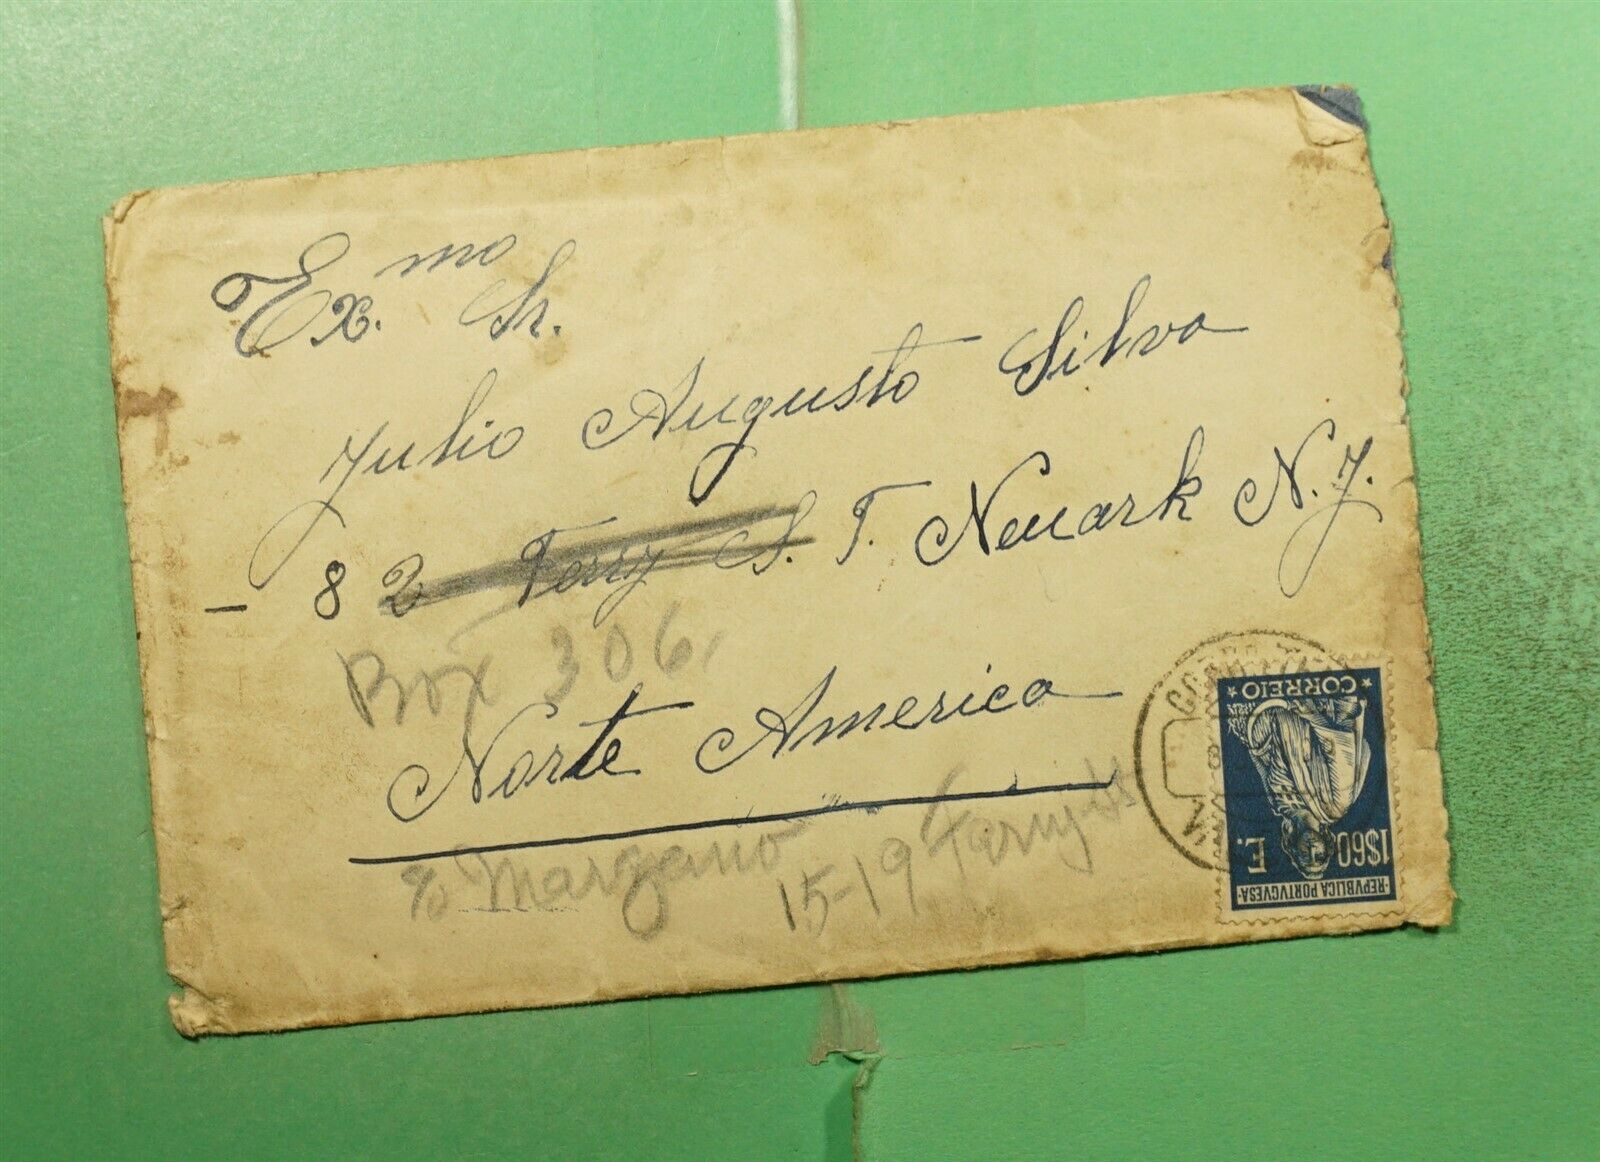 Exmo. Sr.
Julio Augusto Silva
- 82 Ferry S. T. Newark N.J.
Box 306,
Norte America
c/o Marzano
15-19 Ferry St
★ CORREIO ★
1$60 E.
· REPVBLICA PORTVGVESA ·